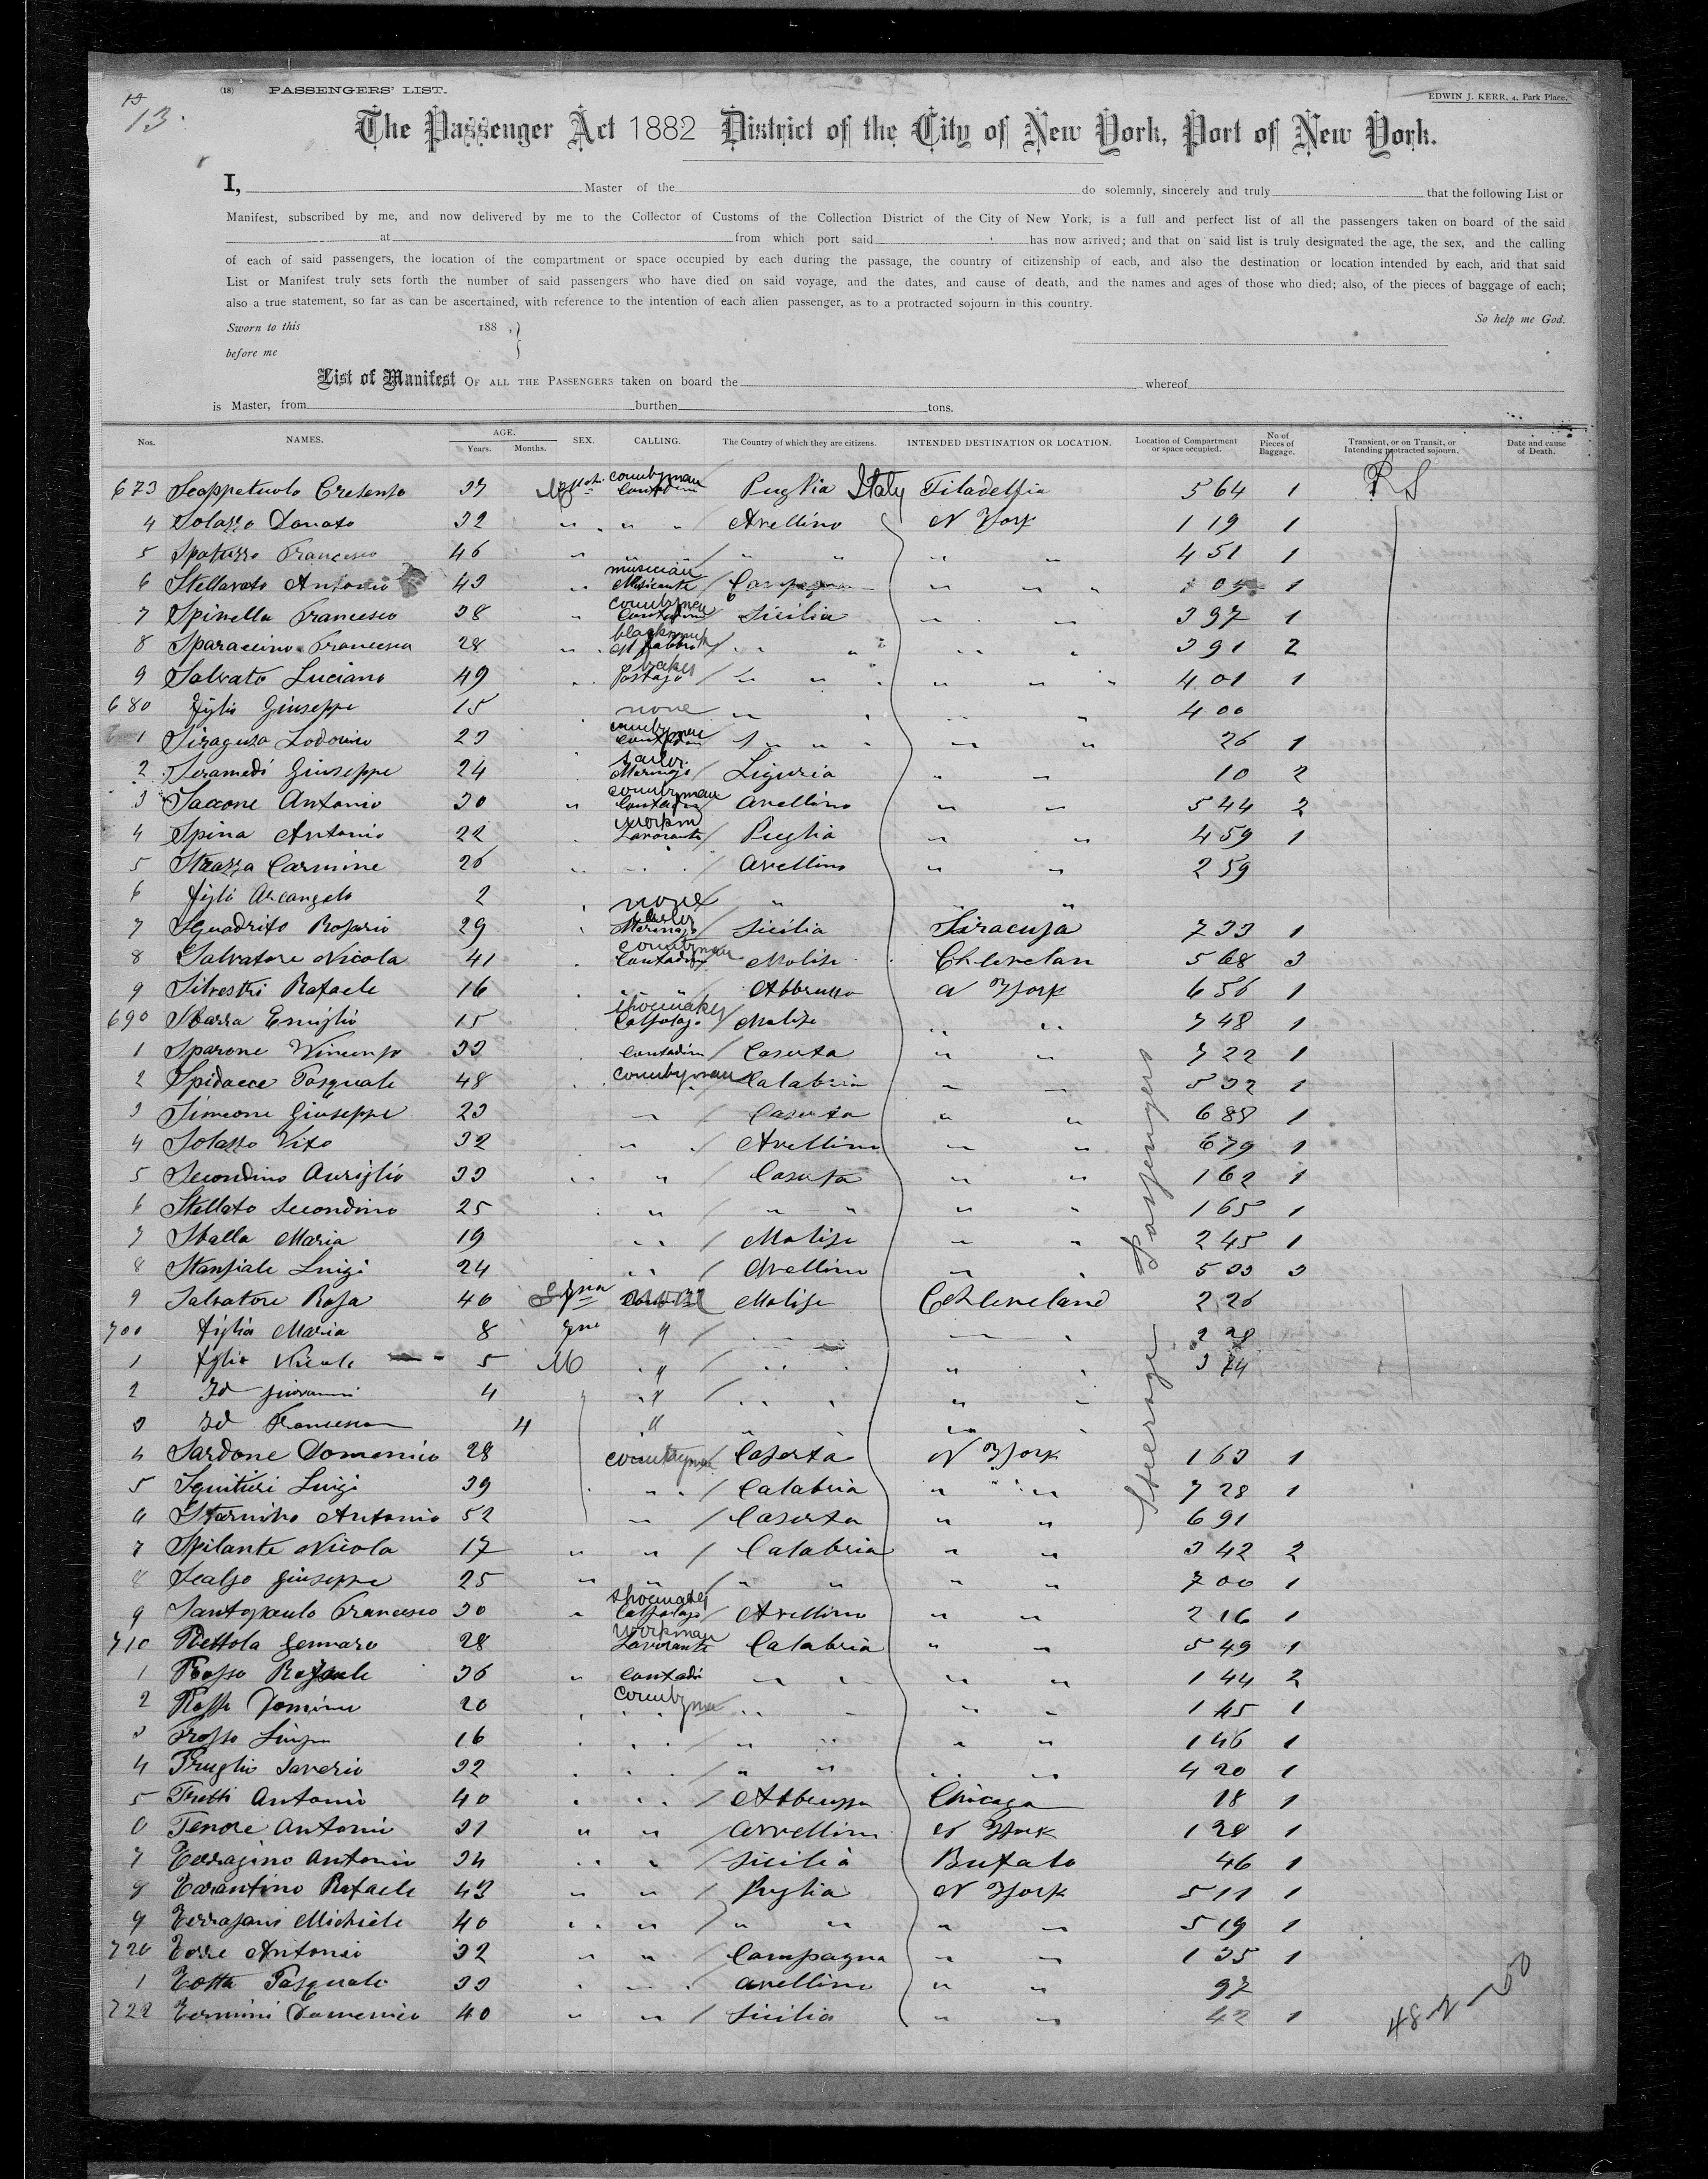 13
13.
(18) PASSENGERS' LIST.
EDWIN J. KERR, 4, Park Place.
The Passenger Act 1882 District of the City of New York, Port of New York.
I, Master of the do solemnly, sincerely and truly that the following List or
Manifest, subscribed by me, and now delivered by me to the Collector of Customs of the Collection District of the City of New York, is a full and perfect list of all the passengers taken on board of the said
at from which port said has now arrived; and that on said list is truly designated the age, the sex, and the calling
of each of said passengers, the location of the compartment or space occupied by each during the passage, the country of citizenship of each, and also the destination or location intended by each, and that said
List or Manifest truly sets forth the number of said passengers who have died on said voyage, and the dates, and cause of death, and the names and ages of those who died; also, of the pieces of baggage of each;
also a true statement, so far as can be ascertained, with reference to the intention of each alien passenger, as to a protracted sojourn in this country.
Sworn to this 188 , So help me God.
before me
List of Manifest OF ALL THE PASSENGERS taken on board the whereof
is Master, from burthen tons.
Nos. NAMES. AGE. Years. Months. SEX. CALLING. The Country of which they are citizens. INTENDED DESTINATION OR LOCATION. Location of Compartment or space occupied. No of Pieces of Baggage. Transient, or on Transit, or Intending protracted sojourn. Date and cause of Death.
673 37 countryman Contadini Puglia Italy Filadelfia 564 1 RS
4 Solazzo Donato 32 " " Avellino N York 119 1
5 Spatuzzo Francesco 46 " " " " 451 1
6 Stellavato Antonio 43 " musician Musicante " 1
7 Spinella Francesco 38 " countryman Contadini Sicilia " 397 1
8 28 " " " 391 2
9 Salvato Luciano 49 " " " 401 1
680 figlio Giuseppe 15 none " " 400
1 Siragusa Lodovico 23 countryman " " 26 1
2 Giuseppe 24 sailor Marinajo Liguria " 10 2
3 Saccone Antonio 30 " countryman Contadini Avellino " 544 2
4 Spina Antonio 22 workm Lavorante Puglia " 459 1
5 Strazza Carmine 26 " " Avellino " 259
6 figlio Arcangelo 2 none " "
7 Squadrito Rosario 29 Marinajo Sicilia Siracusa 733 1
8 Salvatore Nicola 41 countryman Contadini Molise Chlevelan 568 3
9 Silvestri Rafaele 16 " Abbruzzo N York 656 1
690 Sbarra Emiglio 15 shoemaker Calzolajo Molise " 748 1
1 Sparone Vincenzo 33 Contadini Caserta " 722 1
2 Spidacce Pasquale 48 countryman Calabria " 532 1
3 Simeone Giuseppe 23 " Caserta " 688 1
4 Solazzo Vito 32 " Avellino " 679 1
5 Secondino Auriglio 33 " " Caserta " 162 1
6 Stellato Secondino 25 " " " 165 1
7 Sballa Maria 19 " Molise " 245 1
8 Stanziale Luigi 24 " Avellino " 533 3
9 Salvatore Rosa 40 none Molise Chleveland 226
700 figlia Maria 8 " " " 228
1 figlio 5 M " " " 374
2 Id Giovanni 4 " " "
3 Id 4 " " "
4 Sardone Domenico 28 countryman Caserta N York 163 1
5 Squitieri Luigi 39 " Calabria " 728 1
6 Antonio 52 " Caserta " 691
7 Spilante Nicola 17 " " Calabria " 342 2
8 Scalzo Giuseppe 25 " " " " 700 1
9 Santopaulo Francesco 30 " shoemaker Calzolajo Avellino " 216 1
710 Gennaro 28 workman Lavorante Calabria " 549 1
1 36 " Contadi " " 144 2
2 20 countryman " " 145 1
3 16 " " " 146 1
4 Saverio 32 " " " 420 1
5 Antonio 40 " " Abbruzzo Chicago 18 1
6 Tenore Antonio 31 " " Avvellino N York 128 1
7 Antonio 34 " " Sicilia Bufalo 46 1
8 Tarantino Rafaele 43 " " Puglia N York 511 1
9 Michiele 40 " " " " 519 1
720 Torre Antonio 32 " " Campagna " 135 1
1 Totta Pasquale 33 " " Avellino " 97
722 Termini Domenico 40 " " Sicilia " 42 1
Steerage Passengers
48-2-50